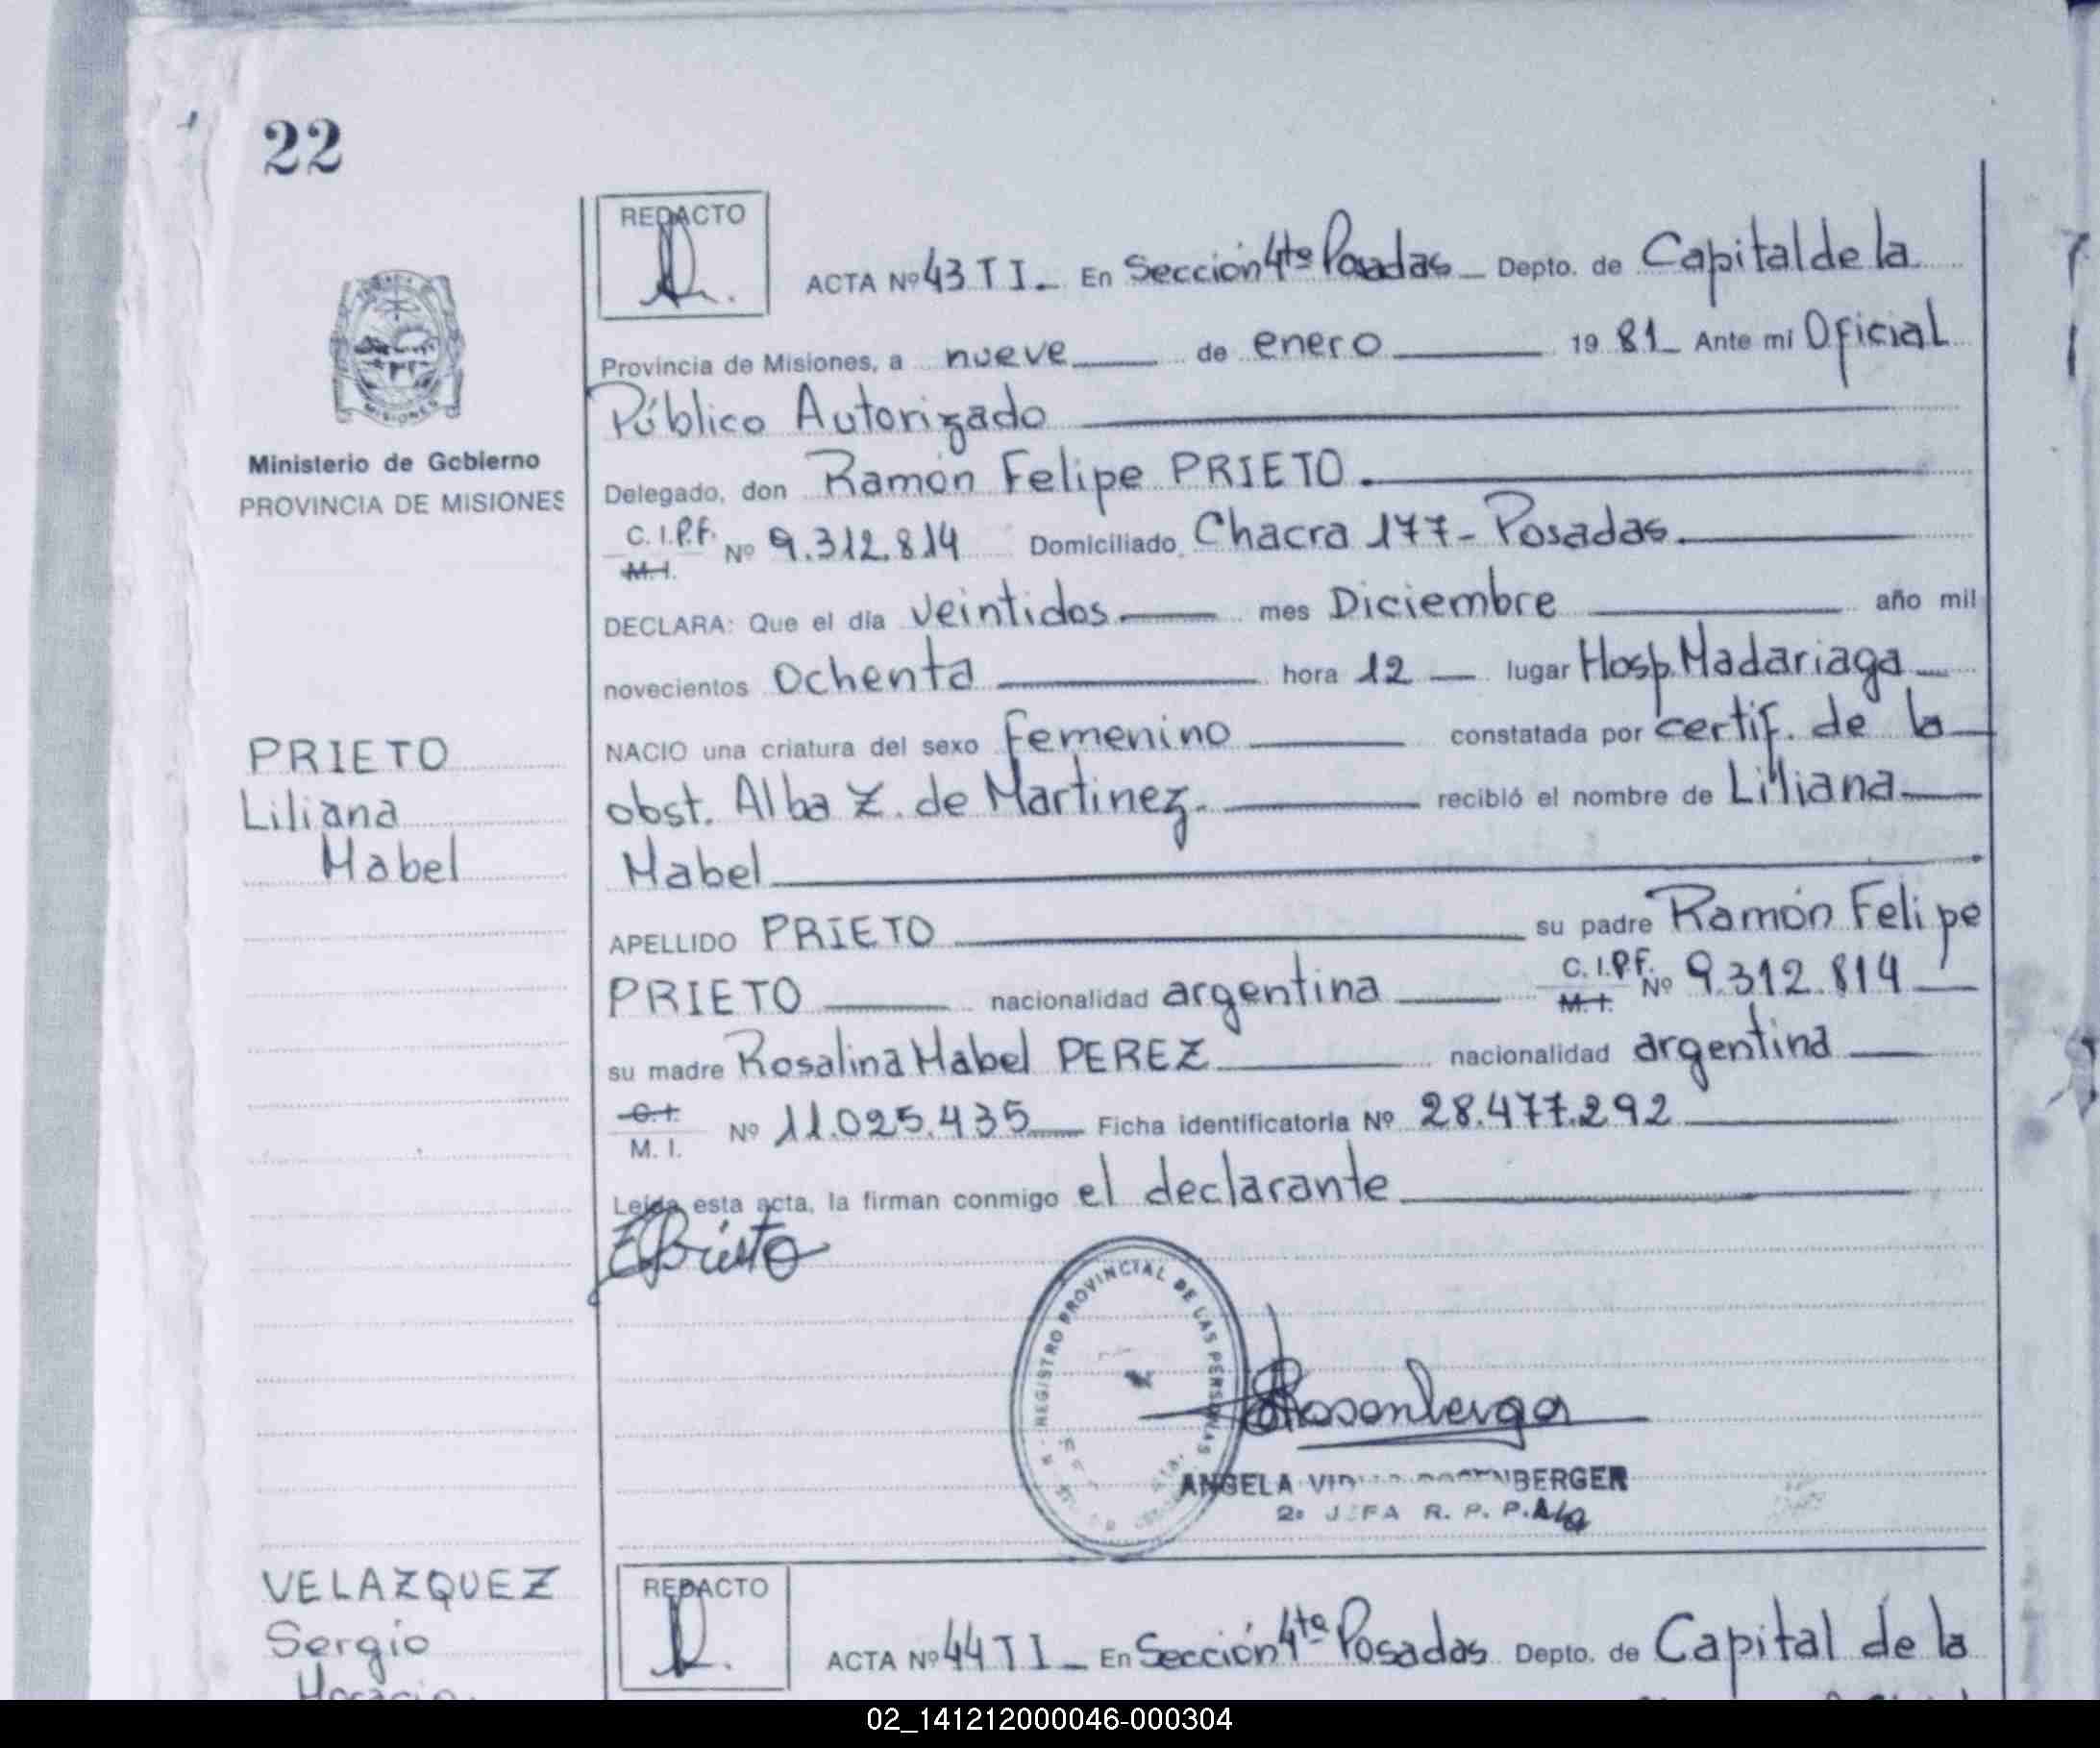 22
REDACTO
ACTA Nº 43 T I. En Sección 4ta Posadas Depto. de Capital de la
Provincia de Misiones, a nueve de enero 1981 Ante mí Oficial
Público Autorizado
Ministerio de Gobierno
PROVINCIA DE MISIONES
Delegado, don Ramón Felipe PRIETO.
C.I.P.F. M.I. Nº 9.312.814 Domiciliado Chacra 177- Posadas.
DECLARA: Que el día veintidos mes Diciembre año mil
novecientos ochenta hora 12 lugar Hosp. Madariaga
PRIETO
Liliana
Mabel
NACIO una criatura del sexo femenino constatada por certif. de la
obst. Alba Z. de Martinez. recibió el nombre de Liliana
Mabel
APELLIDO PRIETO su padre Ramón Felipe
PRIETO nacionalidad argentina C.I.P.F. M.I. Nº 9.312.814
su madre Rosalina Mabel PEREZ nacionalidad argentina
C.I. M.I. Nº 11.025.435 Ficha identificatoria Nº 28.477.292
Leída esta acta, la firman conmigo el declarante
REGISTRO PROVINCIAL DE LAS PERSONAS
ANGELA ROSENBERGER
2º JEFA R. P. P.
VELAZQUEZ
Sergio
Horacio
REDACTO
ACTA Nº 44 T I En Sección 4ta Posadas Depto. de Capital de la
02_141212000046-000304